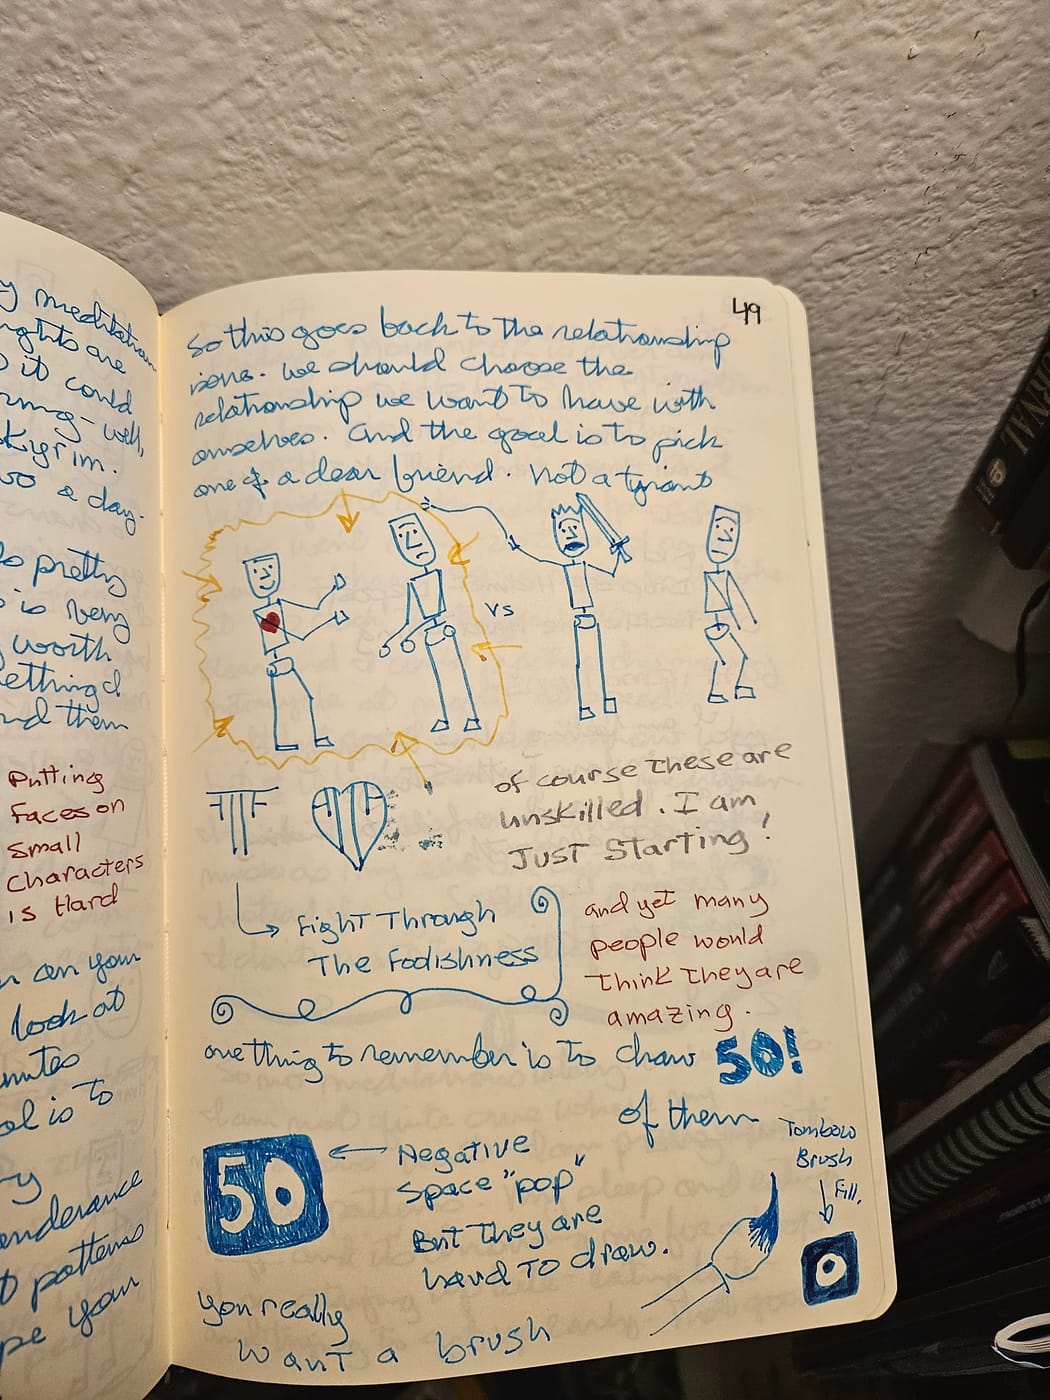 y meditation
nghts are
it could
rmg-well,
Skyrim.
so a day.
pretty
is very
worth
ething d
nd them
Putting
Faces on
Small
Characters
is Hard
n can your
look at
nutes
al is to
ry
enderance
patterns
pe your
49
So this goes back to the relationship
we should choose the
relationship we want to have with
ourselves. And the goal is to pick
one of a dear friend. Not a tyrant
vs
FTF
FTF
of course these are
unskilled. I am
Just Starting!
Fight Through
The Foolishness
and yet many
people would
Think They are
amazing.
one thing to remember is to draw 50!
of them
50
Negative
Space "pop"
But They are
hard to draw.
Tombow
Brush
Fill.
0
you really
want a brush
JRNAL